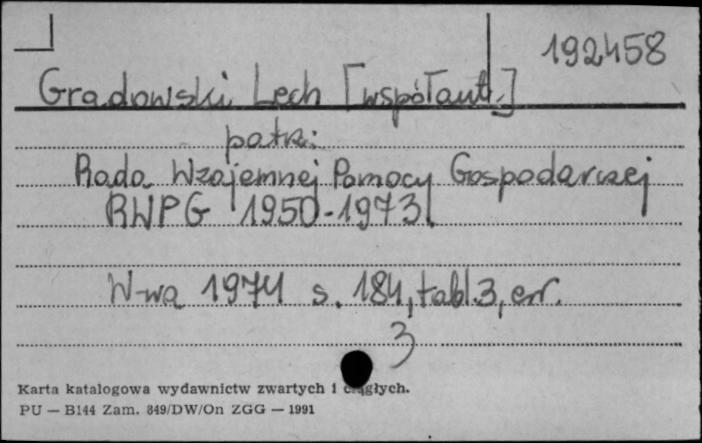 192458
Gradowski Lech [współaut.]
patrz:
Rada Wzajemnej Pomocy Gospodarczej
RWPG 1950-1973
W-wa 1974 s. 184, tabl. 3, err.
3
Karta katalogowa wydawnictw zwartych i ciągłych.
PU — B144 Zam. 849/DW/On ZGG — 1991